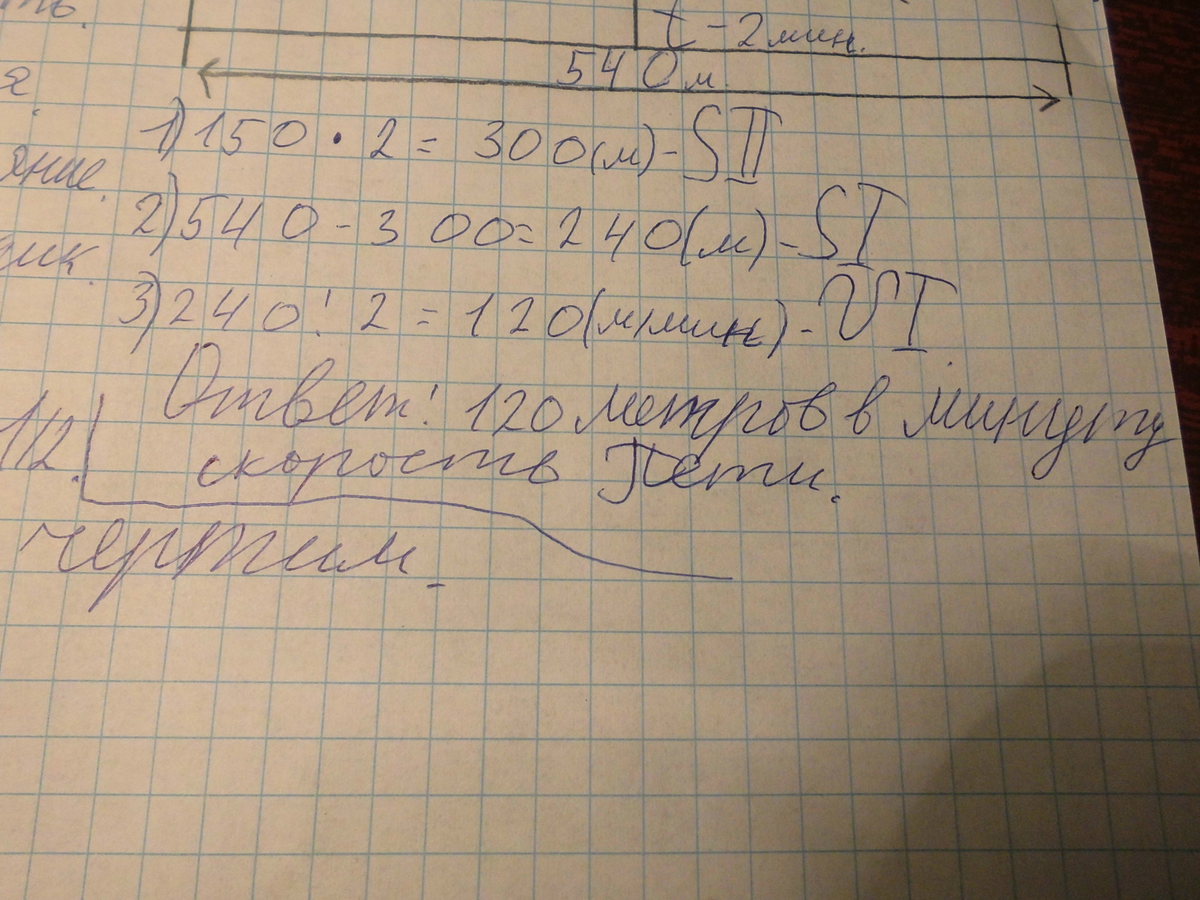 ть.
t - 2 мин.
540 м.
я.
1) 150 · 2 = 300 (м) - SII
яние.
2) 540 - 300 = 240 (м) - SI
дик.
3) 240 : 2 = 120 (м/мин) - VI.
Ответ: 120 метров в минуту
1/2.
скорость Пети.
чертим.